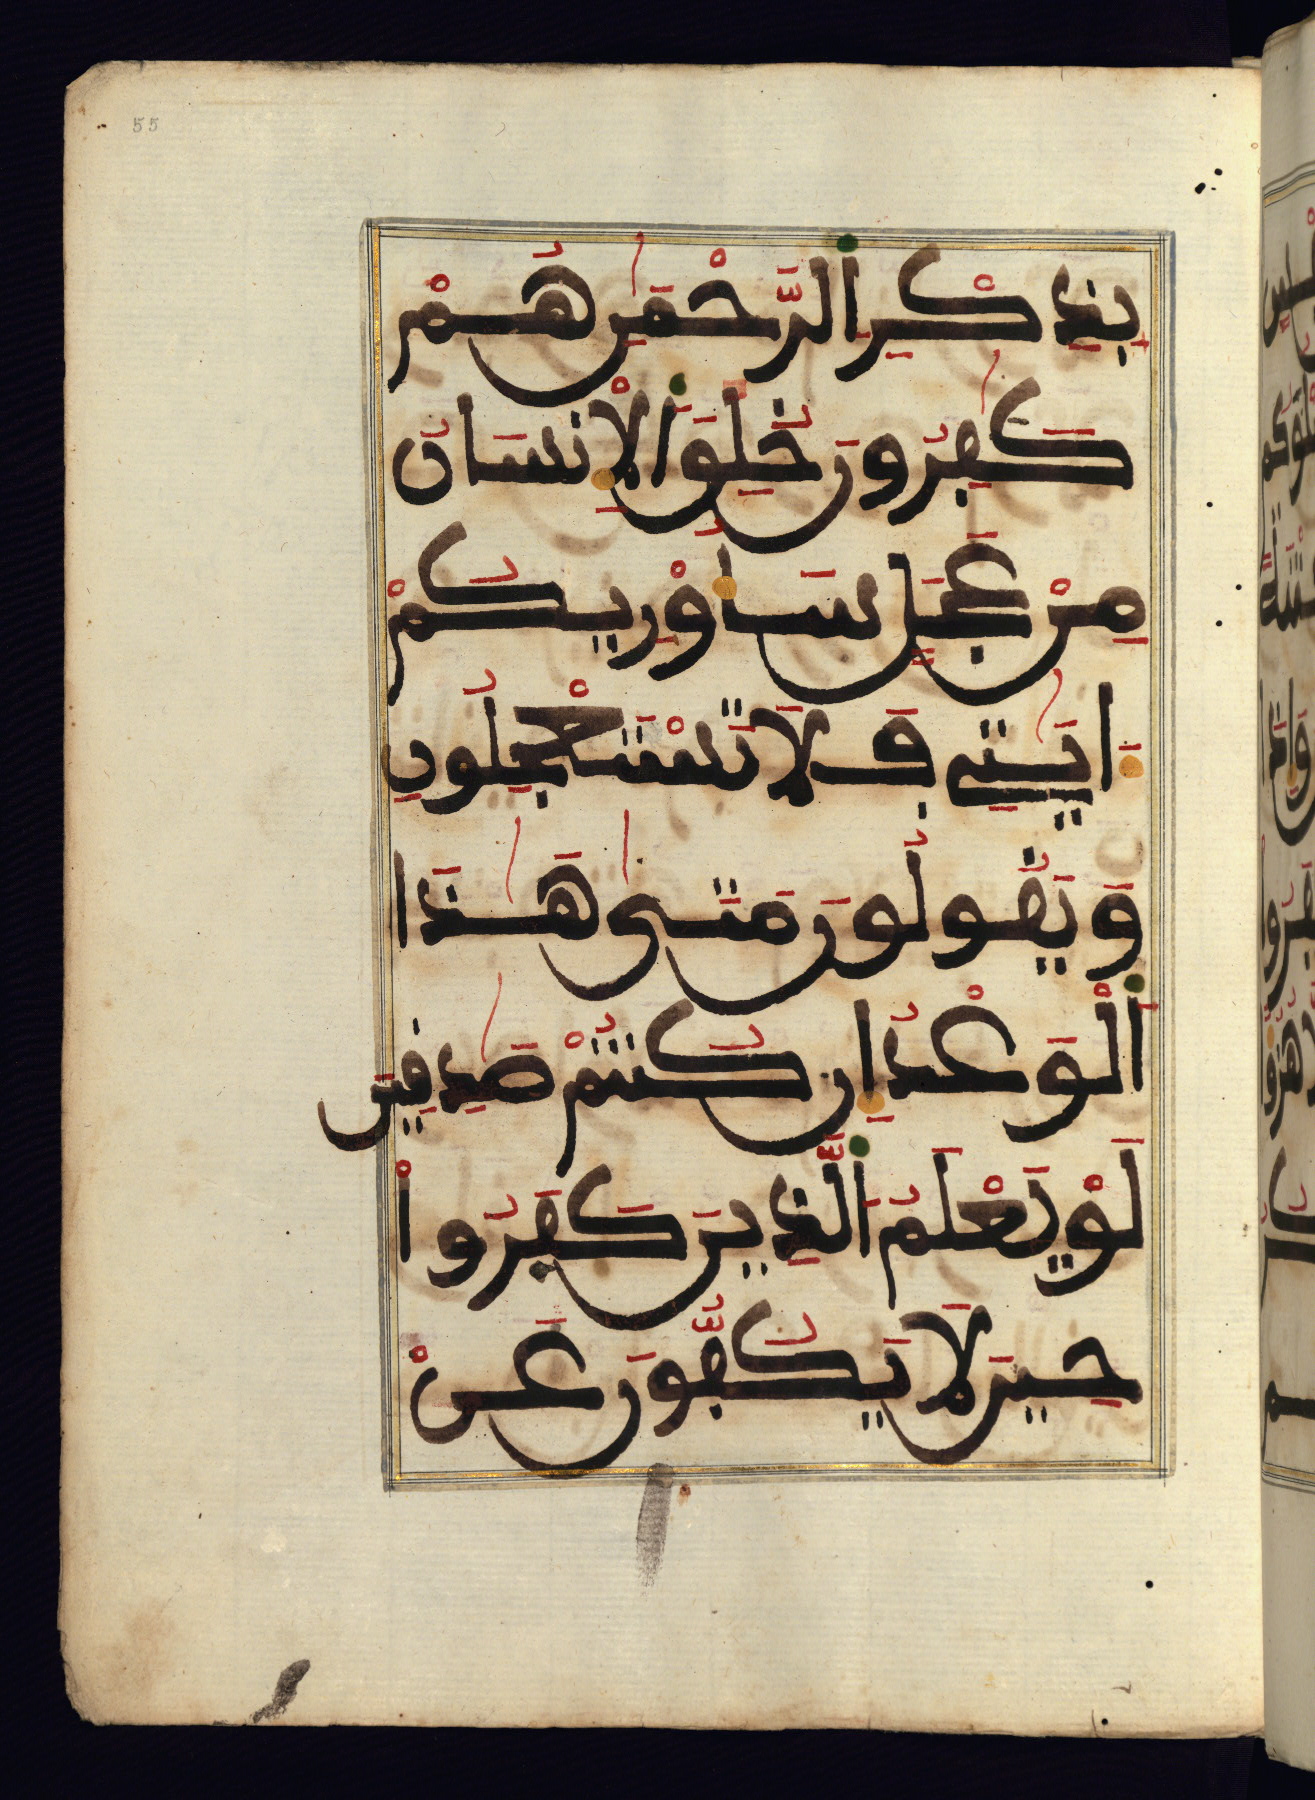 55
بِذِكْرِ اَ۬لرَّحْمَٰنِ هُمْ
كَٰفِرُونَ خُلِقَ اَ۬لْإِنسَانُ
مِنْ عَجَلٍ سَأُوْرِيكُمْ
ءَايَٰتِي فَلَا تَسْتَعْجِلُونِ
وَيَقُولُونَ مَتَىٰ هَٰذَا
اَ۬لْوَعْدُ إِن كُنتُمْ صَٰدِقِينَ
لَوْ يَعْلَمُ اُ۬لَّذِينَ كَفَرُواْ
حِينَ لَا يَكُفُّونَ عَنْ